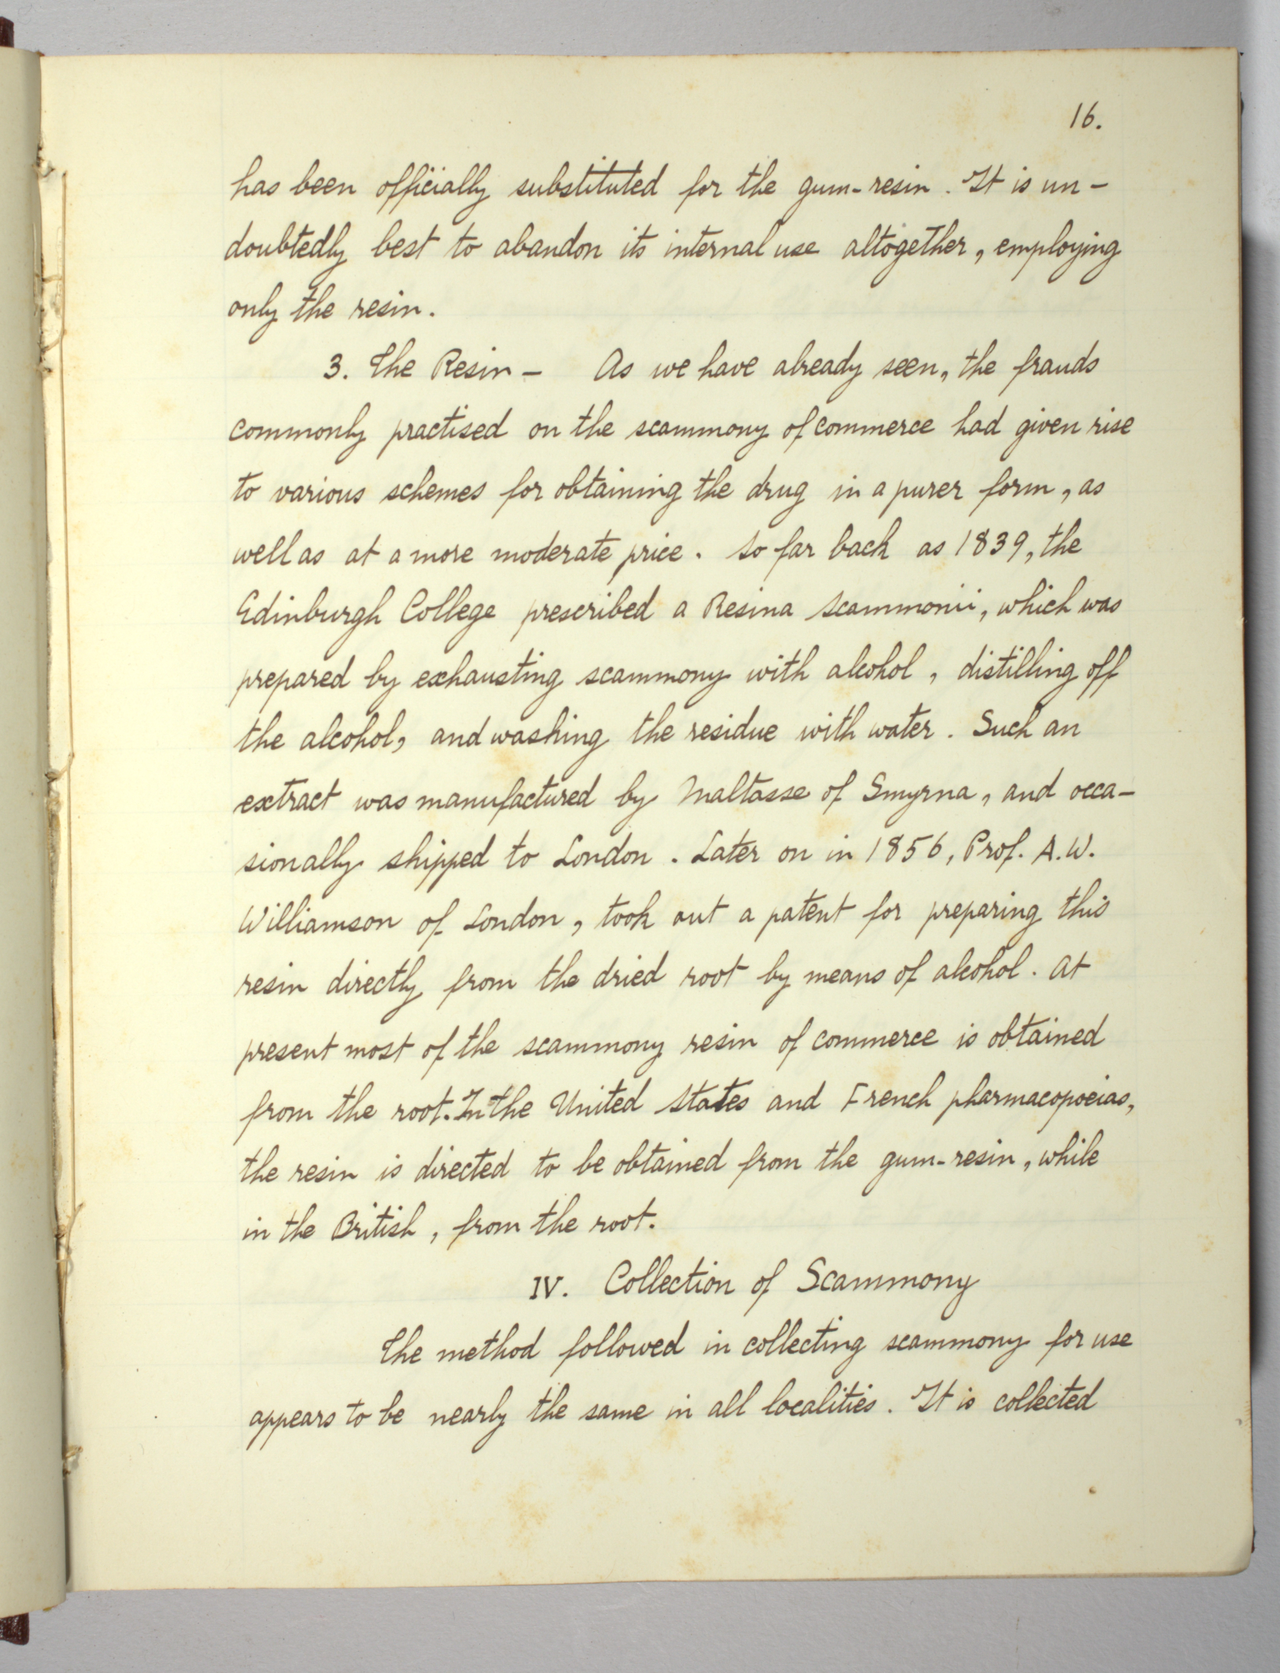 16.
has been officially substituted for the gum-resin. It is un-
doubtedly best to abandon its internal use altogether, employing
only the resin.
3. The Resin – As we have already seen, the frauds
commonly practised on the scammony of commerce had given rise
to various schemes for obtaining the drug in a purer form, as
well as at a more moderate price. So far back as 1839, the
Edinburgh College prescribed a Resina Scammonii, which was
prepared by exhausting scammony with alcohol, distilling off
the alcohol, and washing the residue with water. Such an
extract was manufactured by Maltasse of Smyrna, and occa-
sionally shipped to London. Later on in 1856, Prof. A.W.
Williamson of London, took out a patent for preparing this
resin directly from the dried root by means of alcohol. At
present most of the scammony resin of commerce is obtained
from the root. In the United States and French pharmacopoeias,
the resin is directed to be obtained from the gum-resin, while
in the British, from the root.
IV. Collection of Scammony
The method followed in collecting scammony for use
appears to be nearly the same in all localities. It is collected